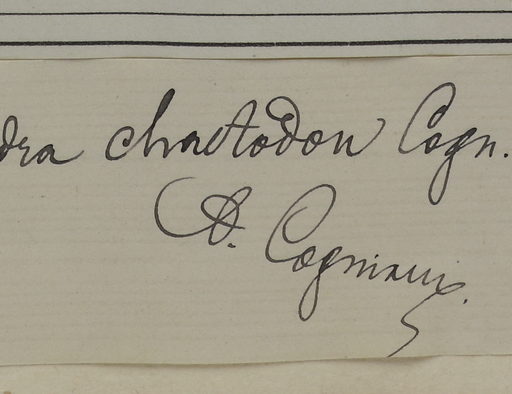 dra chaetodon Cogn.
A. Cogniaux.